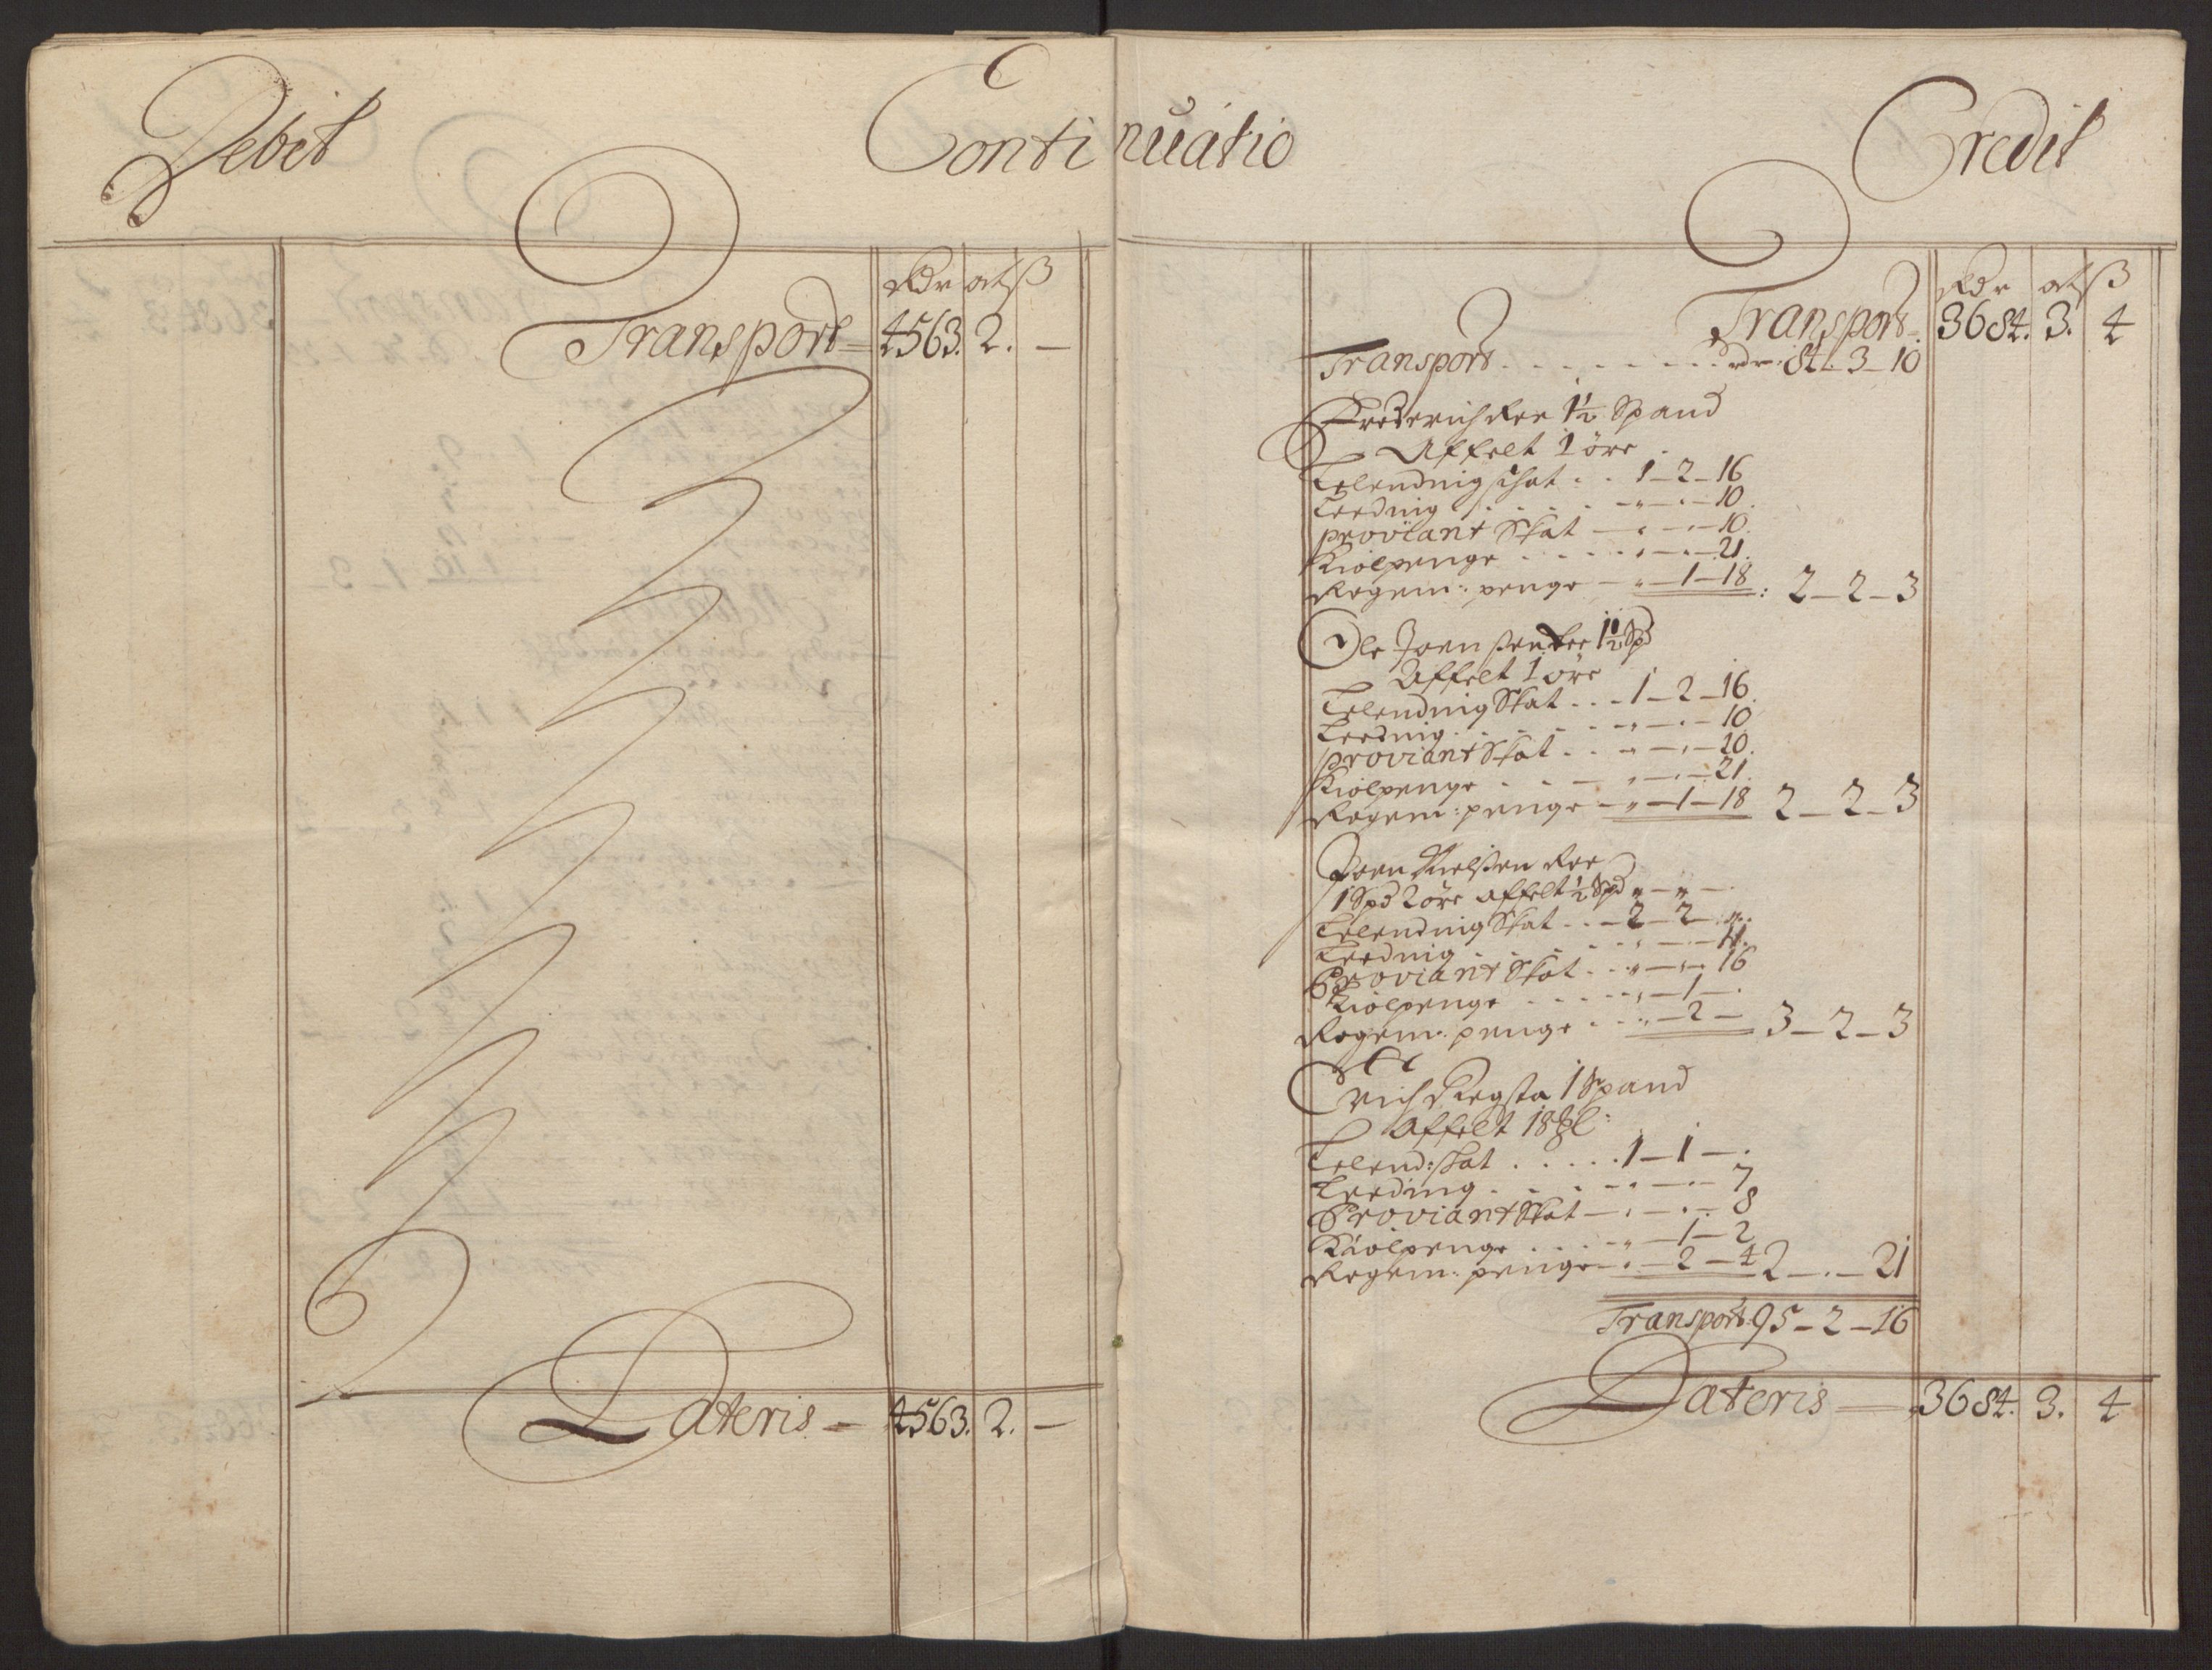 Debet
Continuatio
Credit
Rdr ort ß
Transport 4563. 2. —
Lateris — 4563. 2. —
Rdr ort ß
Transport. 3684. 3. 4
Transport . . . . . . . . rdr: 84 - 3 - 10
Frederich Ree 1½ Spand
Affelt 1 öre
Lelendnig schat . . 1 - 2 - 16
Leednig . . . . . " - " - 10
proviant Skat — " - " - 10
Kiolpenge . . . . . " - " - 21
Regem: penge — " - 1 - 18 : 2 - 2 - 3
Ole Joenssen Ree 1½ Spd
Affelt 1 öre
Lelendnig Skat . . . 1 - 2 - 16
Leednig . . . . . " - " - 10
proviant Skat . . " - " - 10
Kiolpenge . . . " - " - 21
Regem: penge — " - 1 - 18 2 - 2 - 3
Joen Nielssen Ree
1 Spd 2 öre affelt ½ Spd " - " -
Lelendnig Skat . . - 2 - 2 - "
Leednig . . . . . " - " - 11
Proviant Skat . . " - " - 16
Kiolpenge . . . . . " - 1 - "
Regem: penge . . . " - 2 - 3 - 2 - 3
Erich Regsta 1 Spand
Affelt 18
Lelend: skat . . . . . 1 - 1 - "
Leeding . . . . . " - " - 7
Proviant Skat — " - " - 8
Kiolpenge . . . . " - 1 - 2
Regem: penge — " - 2 - 4 2 - " - 21
Transport 95 - 2 - 16
Lateris — 3684. 3. 4